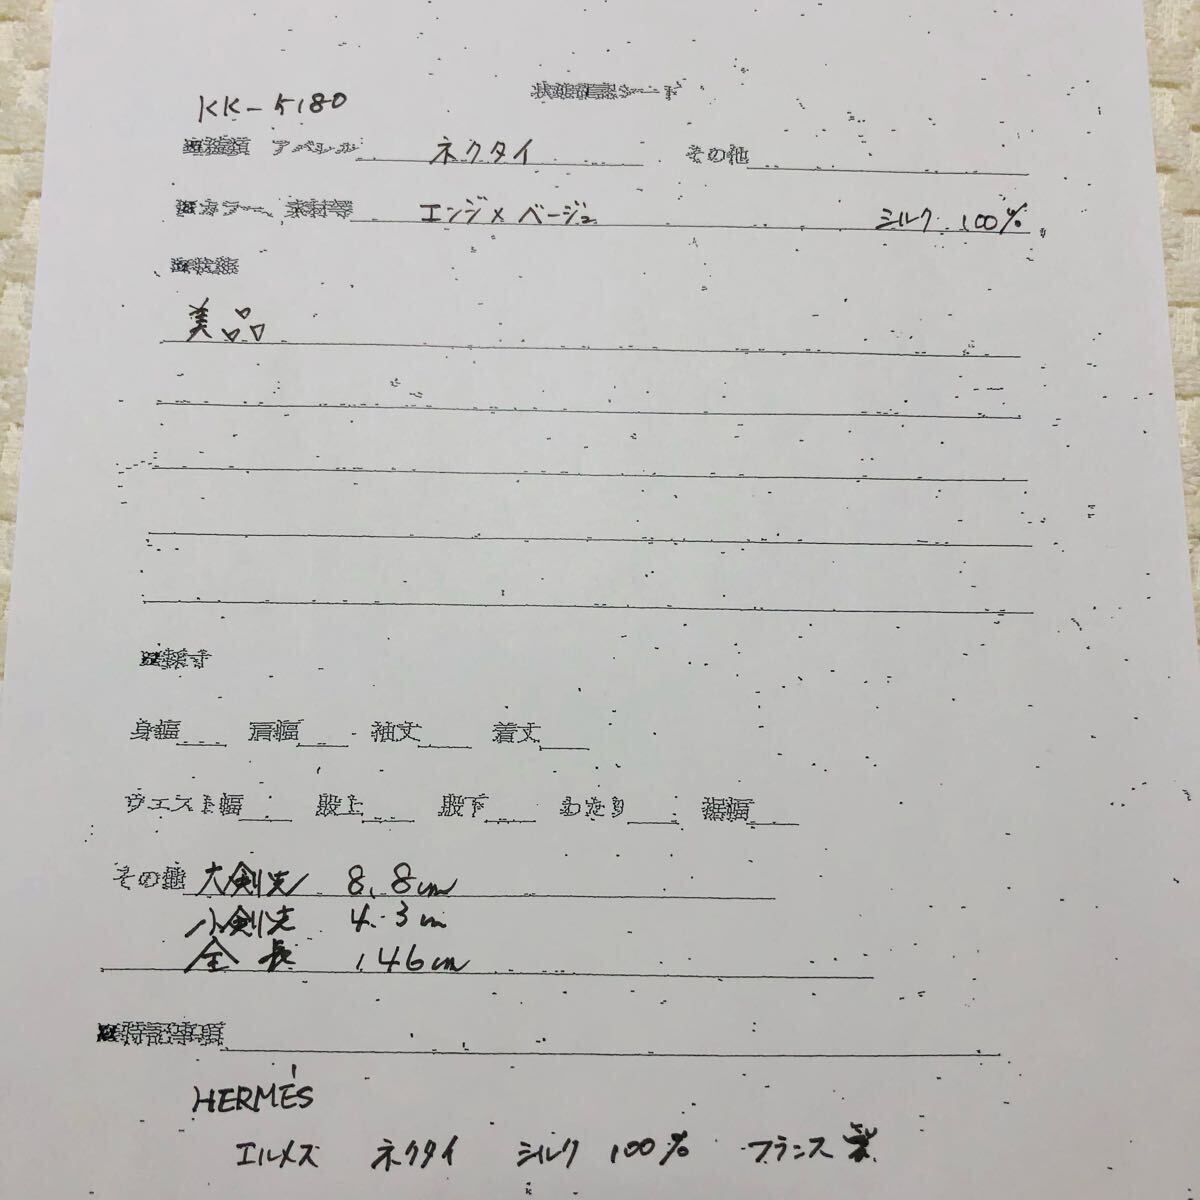 状態確認シート
KK-5180
■種類 アパレル ネクタイ その他
■カラー、素材等 エンジ×ベージュ シルク 100%
■状態
美品
■採寸
身幅 肩幅 袖丈 着丈
ウエスト幅 股上 股下 わたり 裾幅
その他 大剣先 8.8cm
小剣先 4.3cm
全長 146cm
■特記事項
HERMÉS
エルメス ネクタイ シルク 100% フランス製